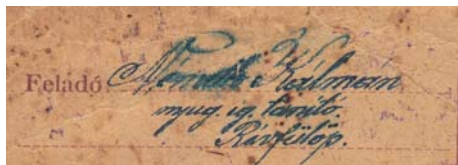 Feladó: Németh Kálmán
nyug. ig. tanító
Révfülöp.